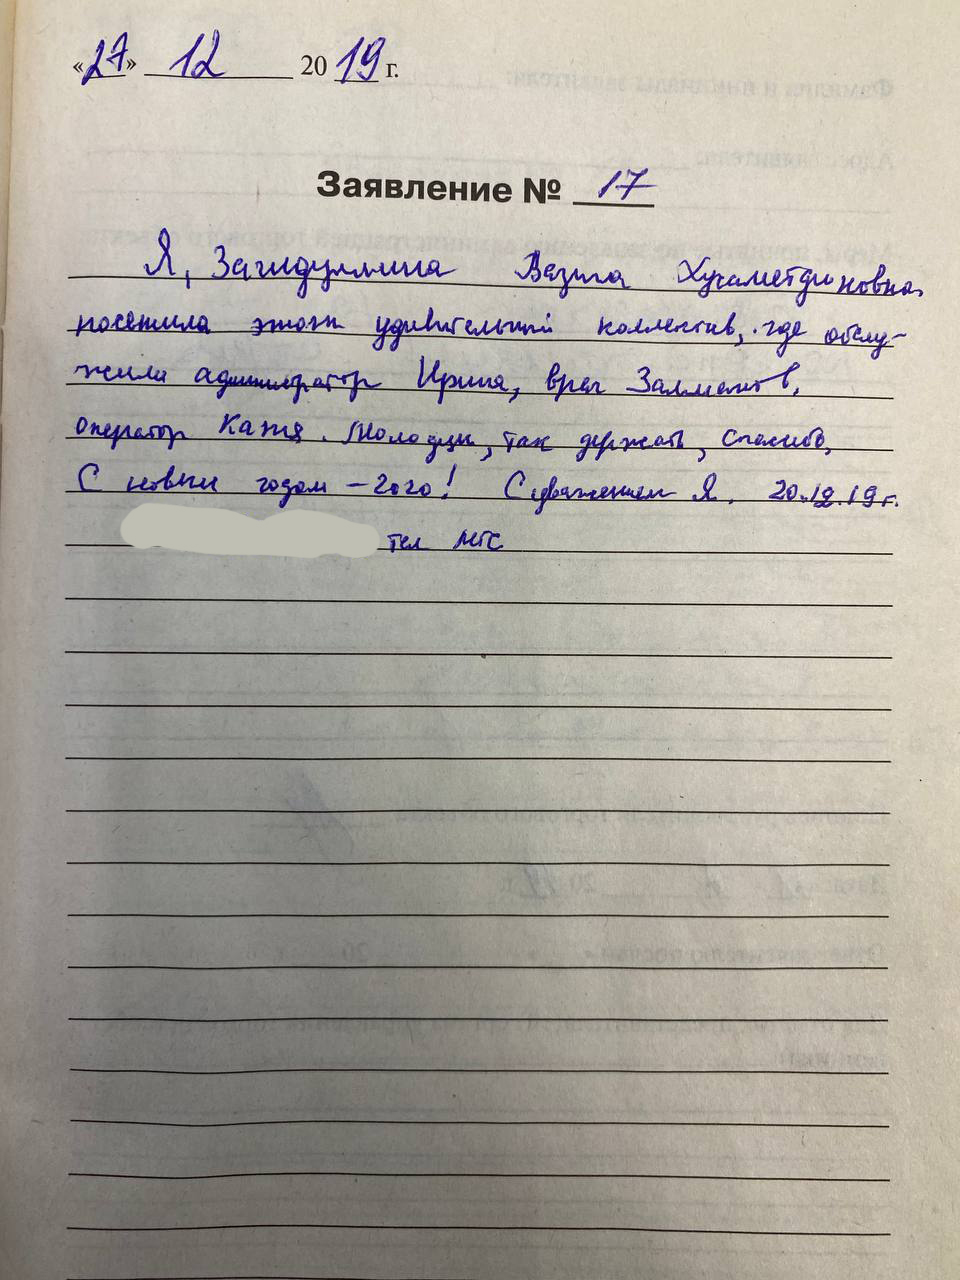 «27» 12 2019 г.
Заявление № 17
Я, Загидуллина Вазига Хусаметдиновна,
посетила этот удивительный коллектив, где обслу-
жили администратор Ирина, врач
оператор Катя. Молодцы, так держать, спасибо,
С новым годом – 2020! С уважением Я. 20.12.19г.
тел мтс